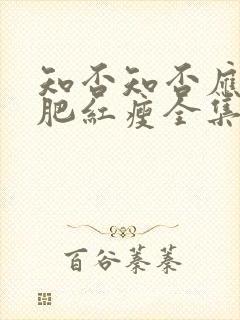 知否知否應
肥紅瘦全集
百谷蓁蓁